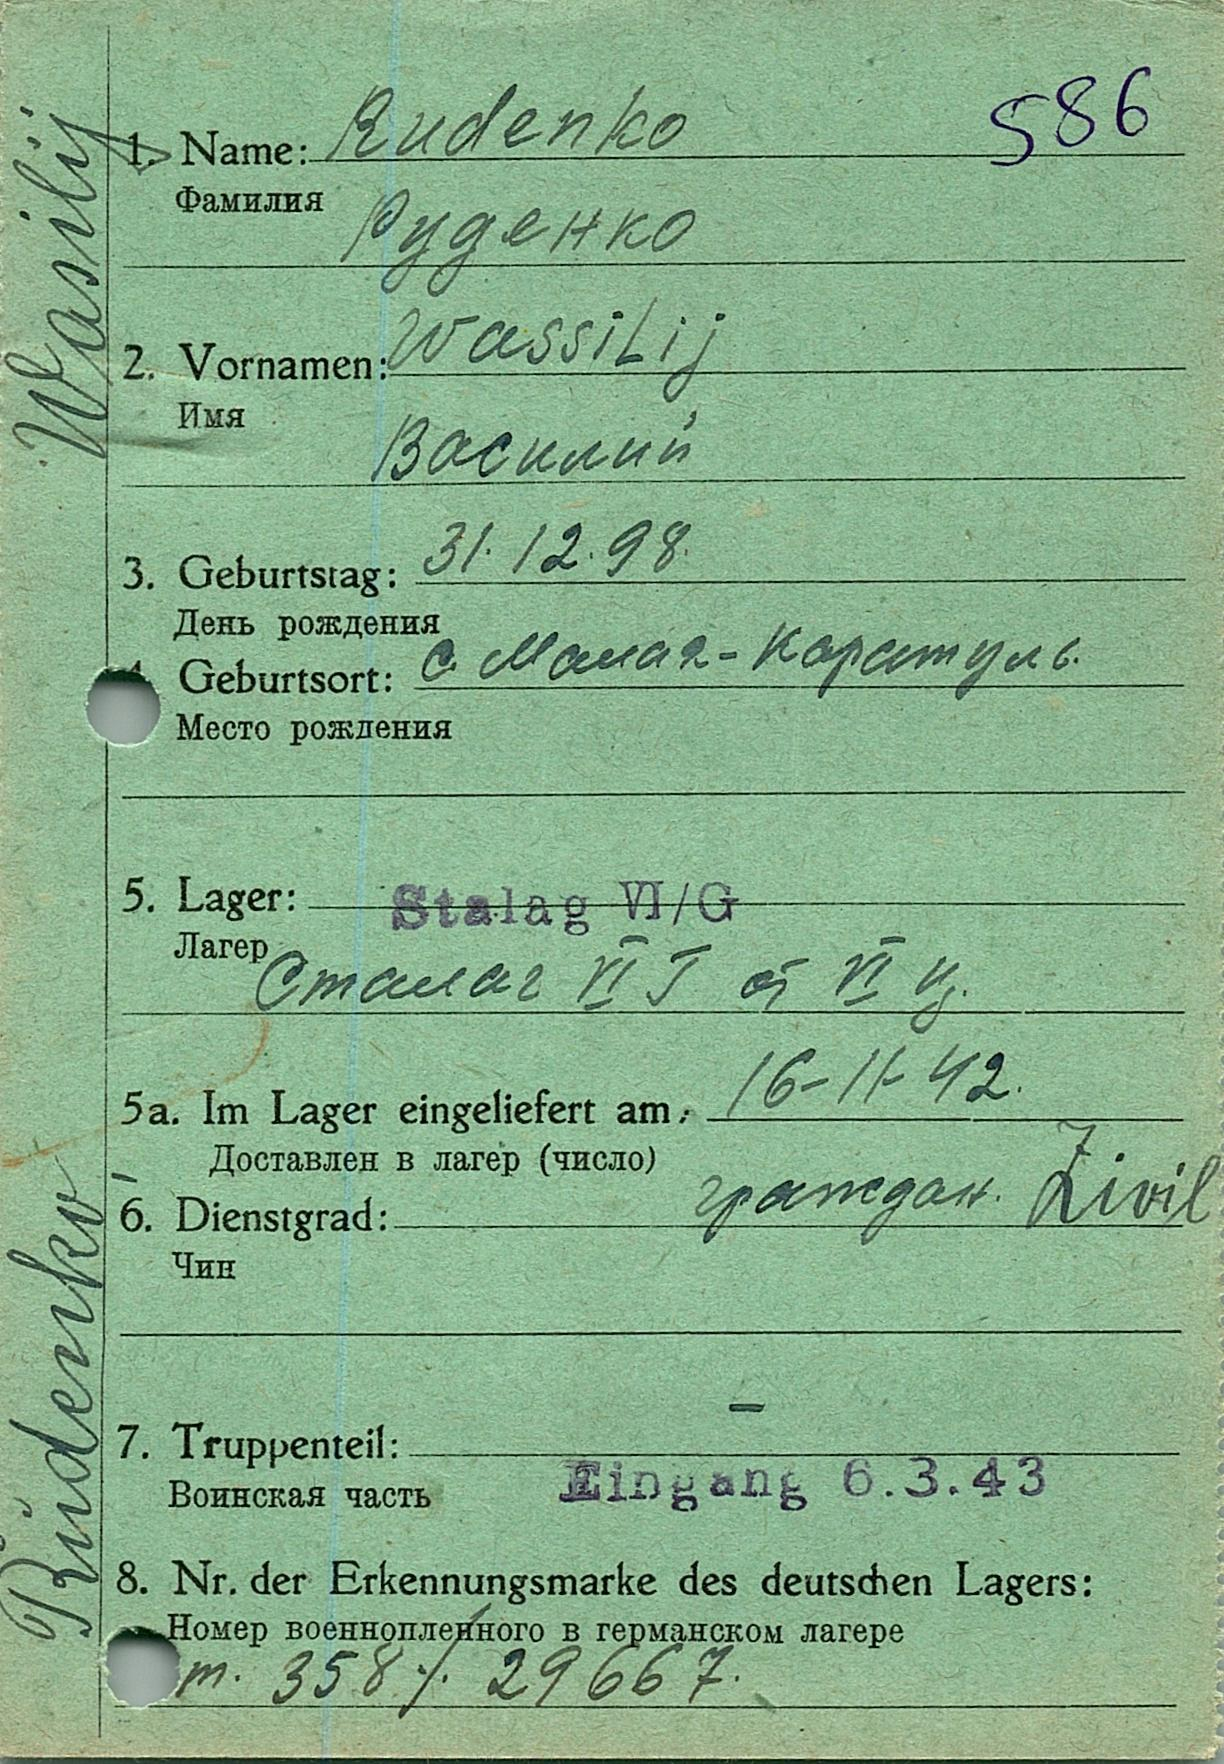 586
1. Name: Rudenko
Фамилия
Руденко
2. Vornamen: Wassilij
Имя
Василий
3. Geburtstag: 31.12.98.
День рождения
4 Geburtsort: с. Малая-Каратуль.
Место рождения
5. Lager: Stalag VI/G
Лагер
Сталаг VI
VI
5a. Im Lager eingeliefert am: 16-11-42.
Доставлен в лагер (число)
6. Dienstgrad: граждан. Zivil
Чин
7. Truppenteil: –
Воинская часть
Eingang 6.3.43
8. Nr. der Erkennungsmarke des deutschen Lagers:
Номер военнопленного в германском лагере
358/. 29667.
Rudenko, Wasilij